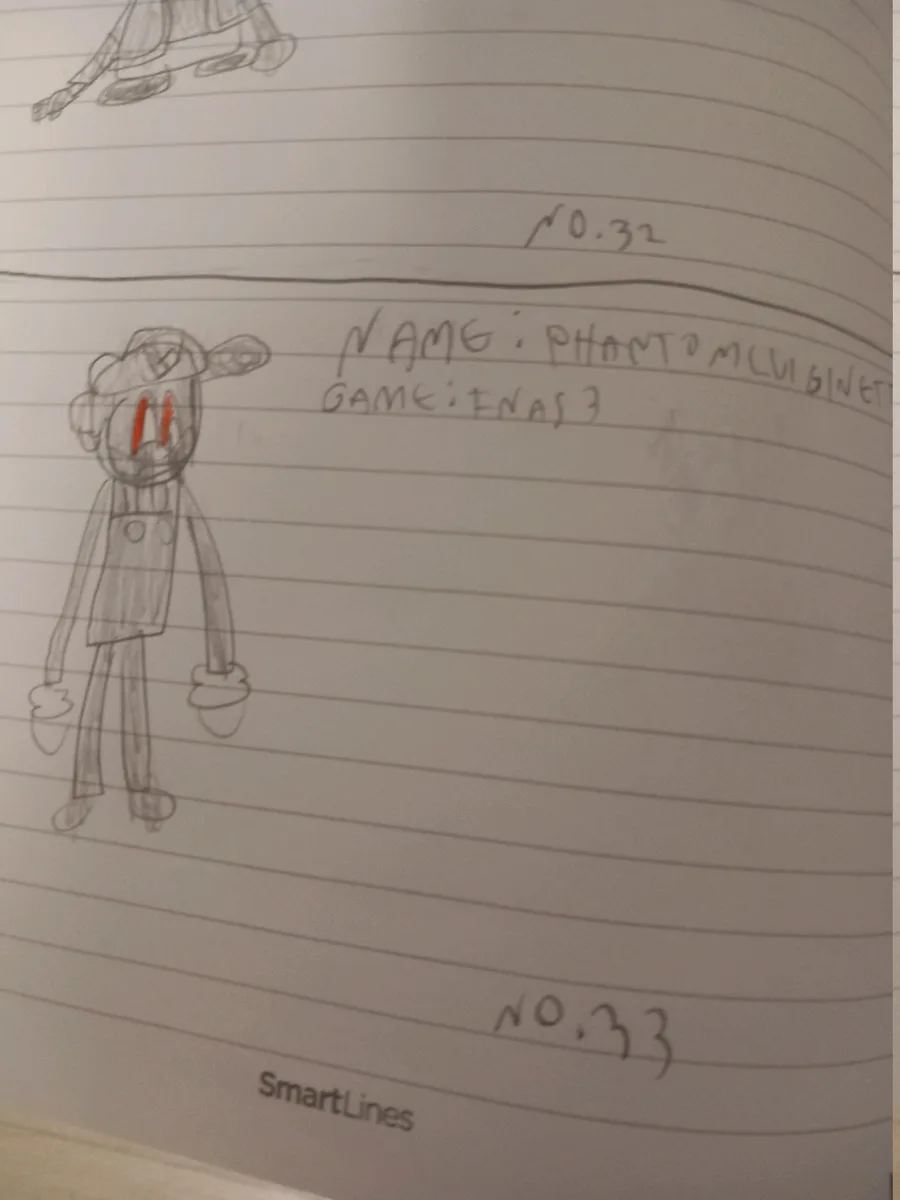 NO.32
NAME: PHANTOMLUIGINET
GAME: FNAS 3
NO.33
SmartLines